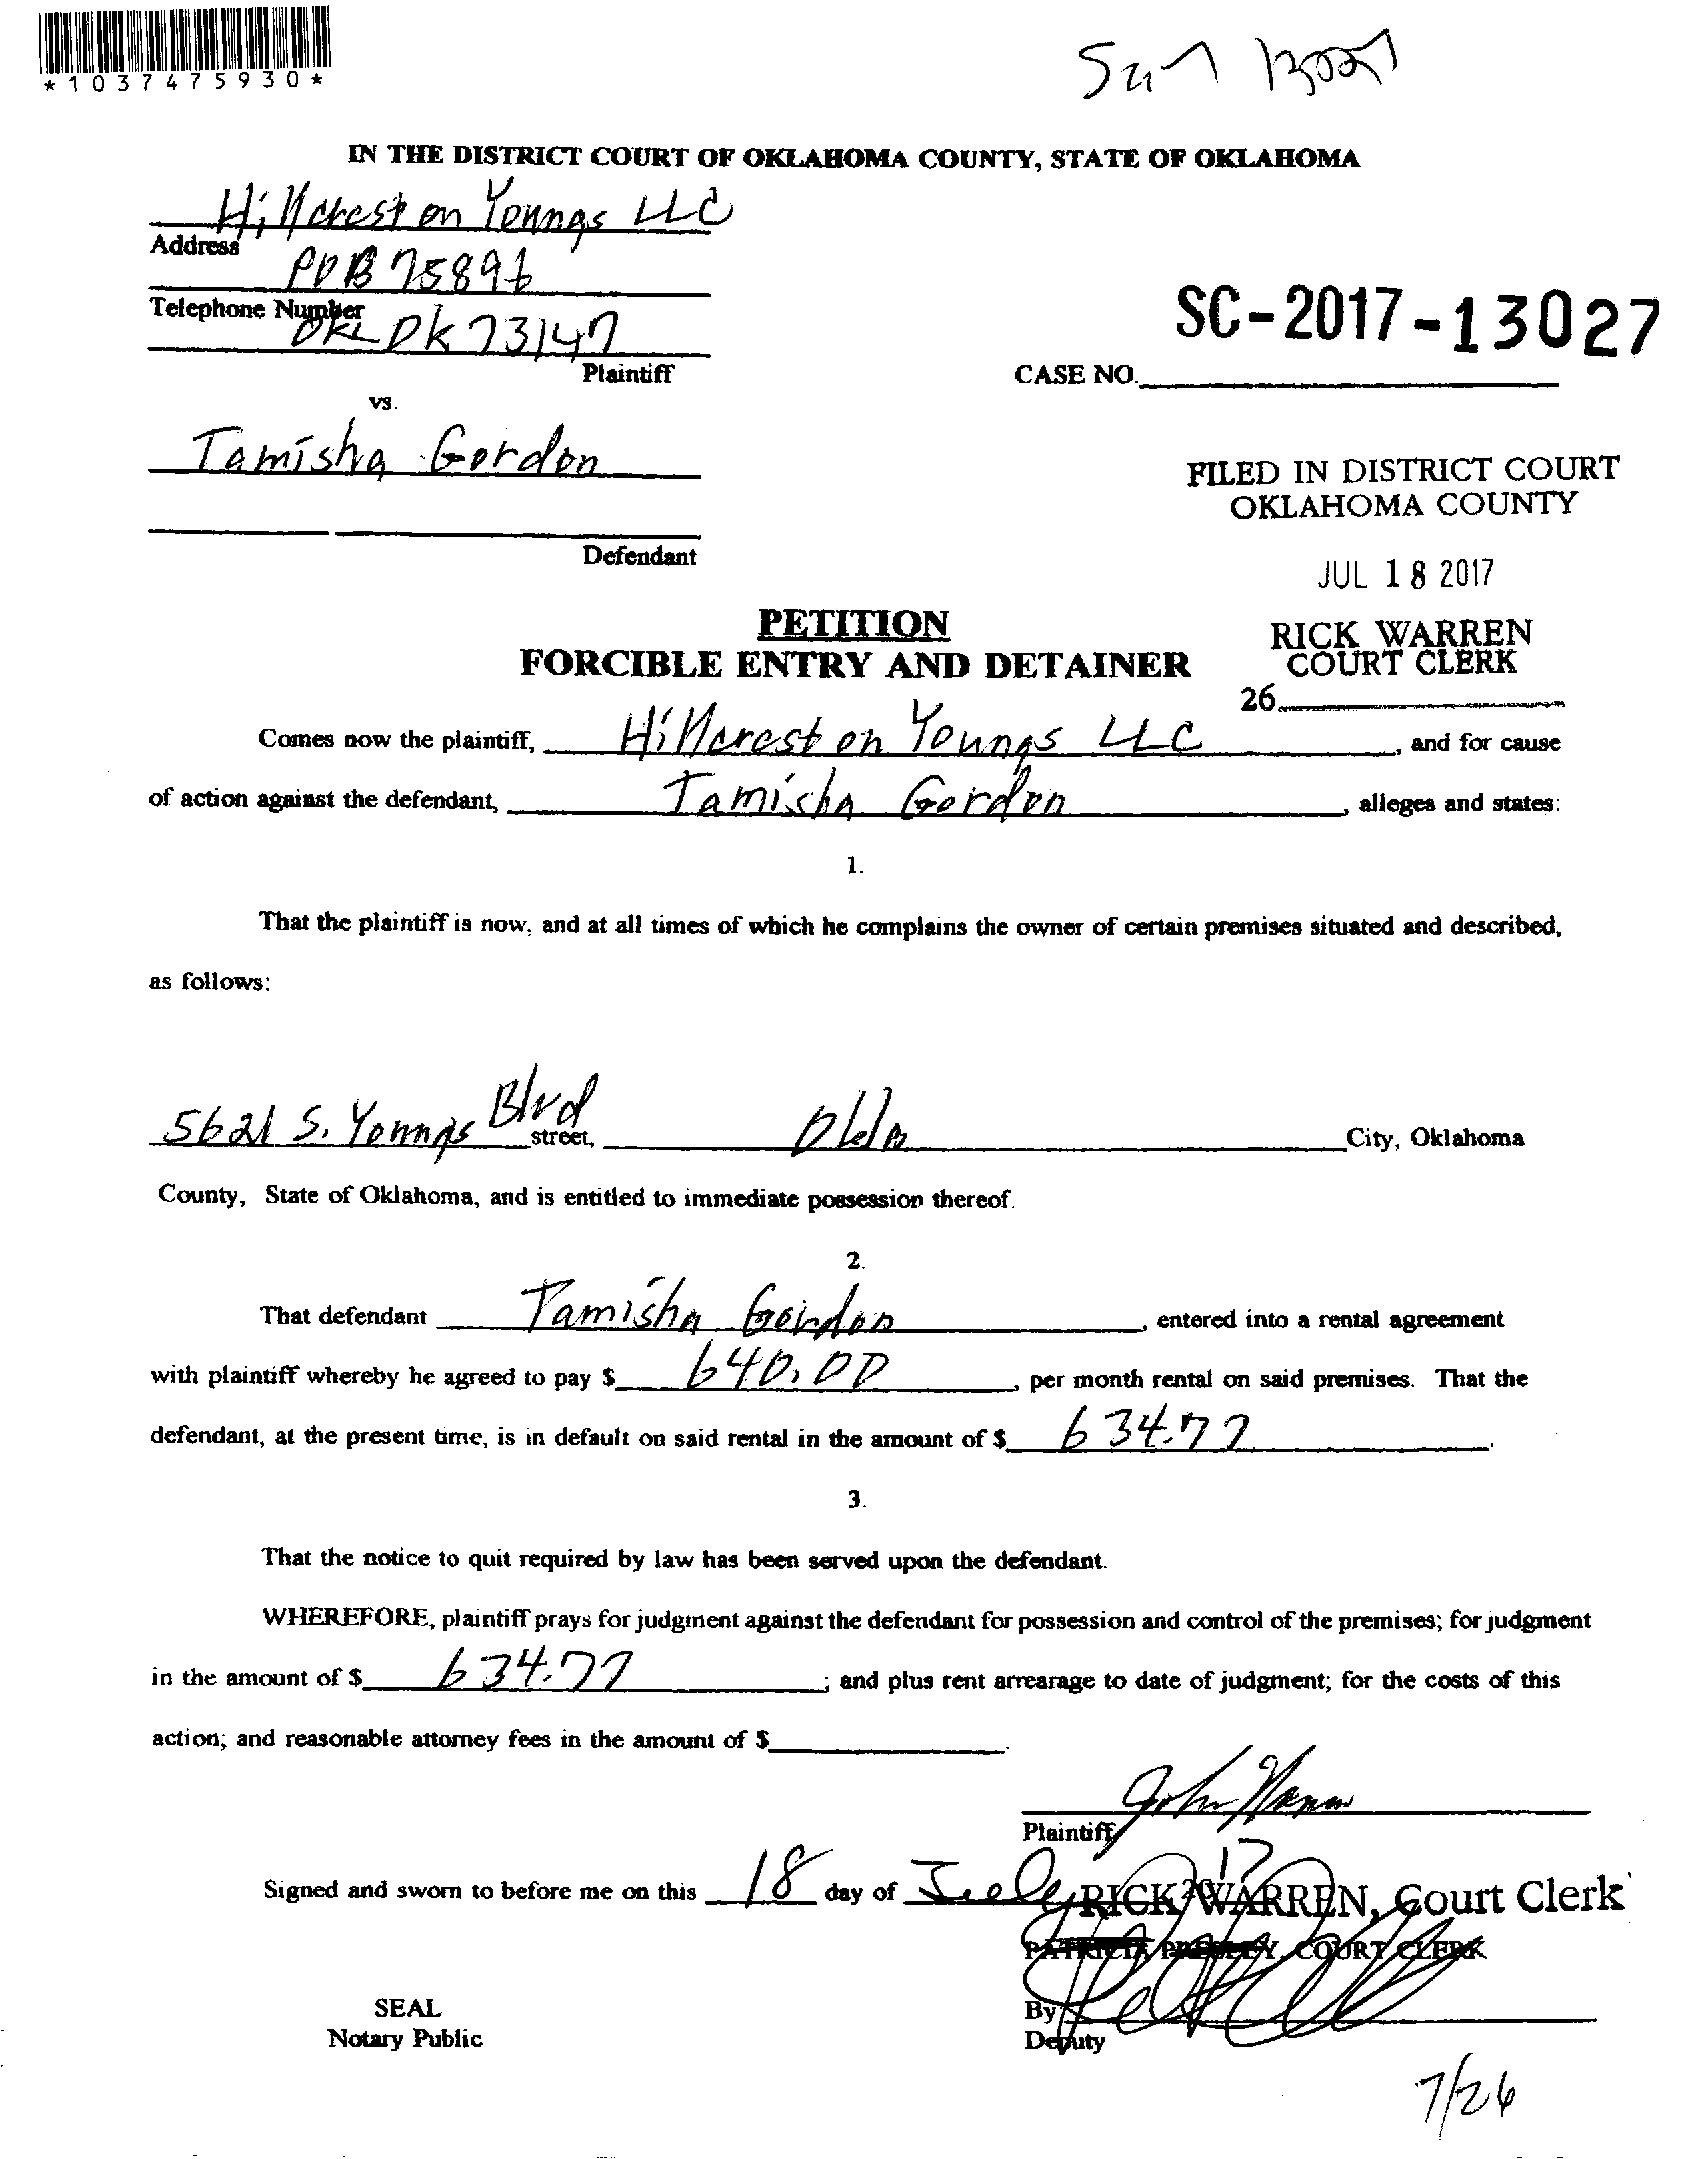 *1037475930*
IN THE DISTRICT COURT OF OKLAHOMA COUNTY, STATE OF OKLAHOMA
Hillcrest on Youngs LLC
Address
POB 75896
Telephone Number
OKC OK 73147
Plaintiff
SC-2017-13027
CASE NO.
vs.
Tamisha Gordon
Defendant
FILED IN DISTRICT COURT
OKLAHOMA COUNTY
JUL 18 2017
RICK WARREN
COURT CLERK
26
PETITION
FORCIBLE ENTRY AND DETAINER
Comes now the plaintiff, Hillcrest on Youngs LLC, and for cause
of action against the defendant, Tamisha Gordon, alleges and states:
1.
That the plaintiff is now, and at all times of which he complains the owner of certain premises situated and described,
as follows:
5621 S. Youngs Blvd street, Okla City, Oklahoma
County, State of Oklahoma, and is entitled to immediate possession thereof.
2.
That defendant Tamisha Gordon, entered into a rental agreement
with plaintiff whereby he agreed to pay $ 640.00, per month rental on said premises. That the
defendant, at the present time, is in default on said rental in the amount of $ 634.77.
3.
That the notice to quit required by law has been served upon the defendant.
WHEREFORE, plaintiff prays for judgment against the defendant for possession and control of the premises; for judgment
in the amount of $ 634.77; and plus rent arrearage to date of judgment; for the costs of this
action; and reasonable attorney fees in the amount of $.
Plaintiff
Signed and sworn to before me on this 18 day of July 2017
RICK WARREN, Court Clerk
PATRICIA PRESLEY, COURT CLERK
SEAL
Notary Public
By
Deputy
7/26